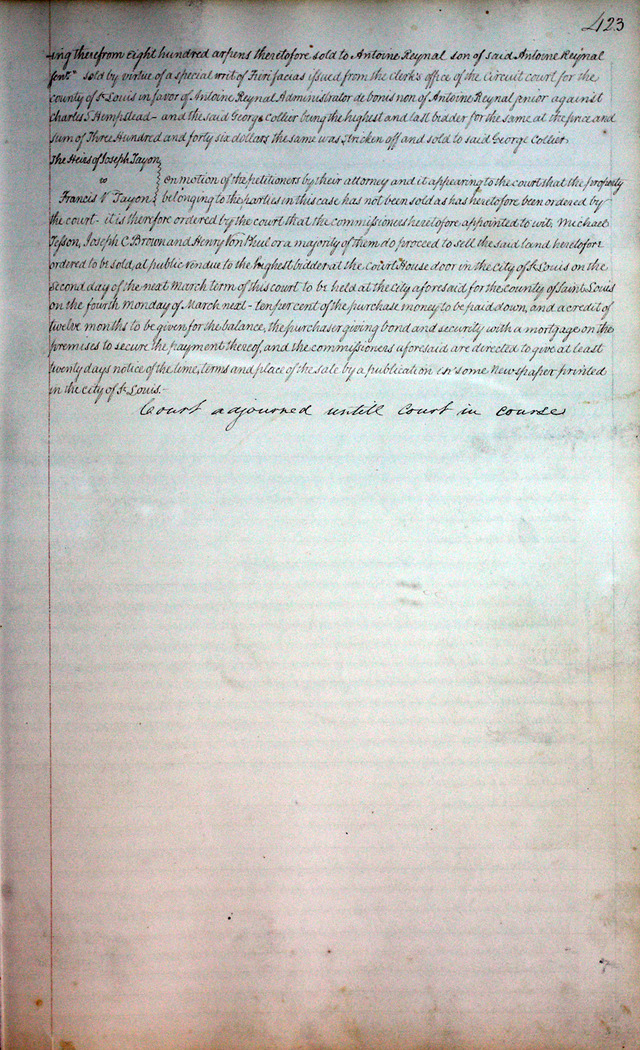 423
ing therefrom Eight hundred arpens theretofore sold to Antoine Reynal son of said Antoine Reynal
senr sold by virtue of a special writ of Fieri facias issued from the clerk's office of the Circuit court for the
county of St Louis in favor of Antoine Reynal Administrator de bonis non of Antoine Reynal senior against
Charles S Hempstead - and the said George Collier being the highest and last bidder for the same at the price and
sum of Three Hundred and forty six dollars the same was stricken off and sold to said George Collier
The Heirs of Joseph Tayon
vs
on motion of the petitioners by their attorney and it appearing to the court that the property
Francis V Tayon belonging to the parties in this case has not been sold as has heretofore been ordered by
the court - it is therefore ordered by the court that the commissioners heretofore appointed to wit, Michael
Tesson, Joseph C Brown and Henry Von Phul or a majority of them do proceed to sell the said land heretofore
ordered to be sold, at public vendue to the highest bidder at the Court House door in the city of St Louis on the
second day of the next March term of this court to be held at the city aforesaid for the county of Saint Louis
on the fourth Monday of March next - ten per cent of the purchase money to be paid down, and a credit of
twelve months to be given for the balance, the purchaser giving bond and security with a mortgage on the
premises to secure the payment thereof, and the commissioners aforesaid are directed to give at least
twenty days notice of the time, terms and place of the sale by a publication in some Newspaper printed
in the city of St Louis.-
Court adjourned untill Court in course